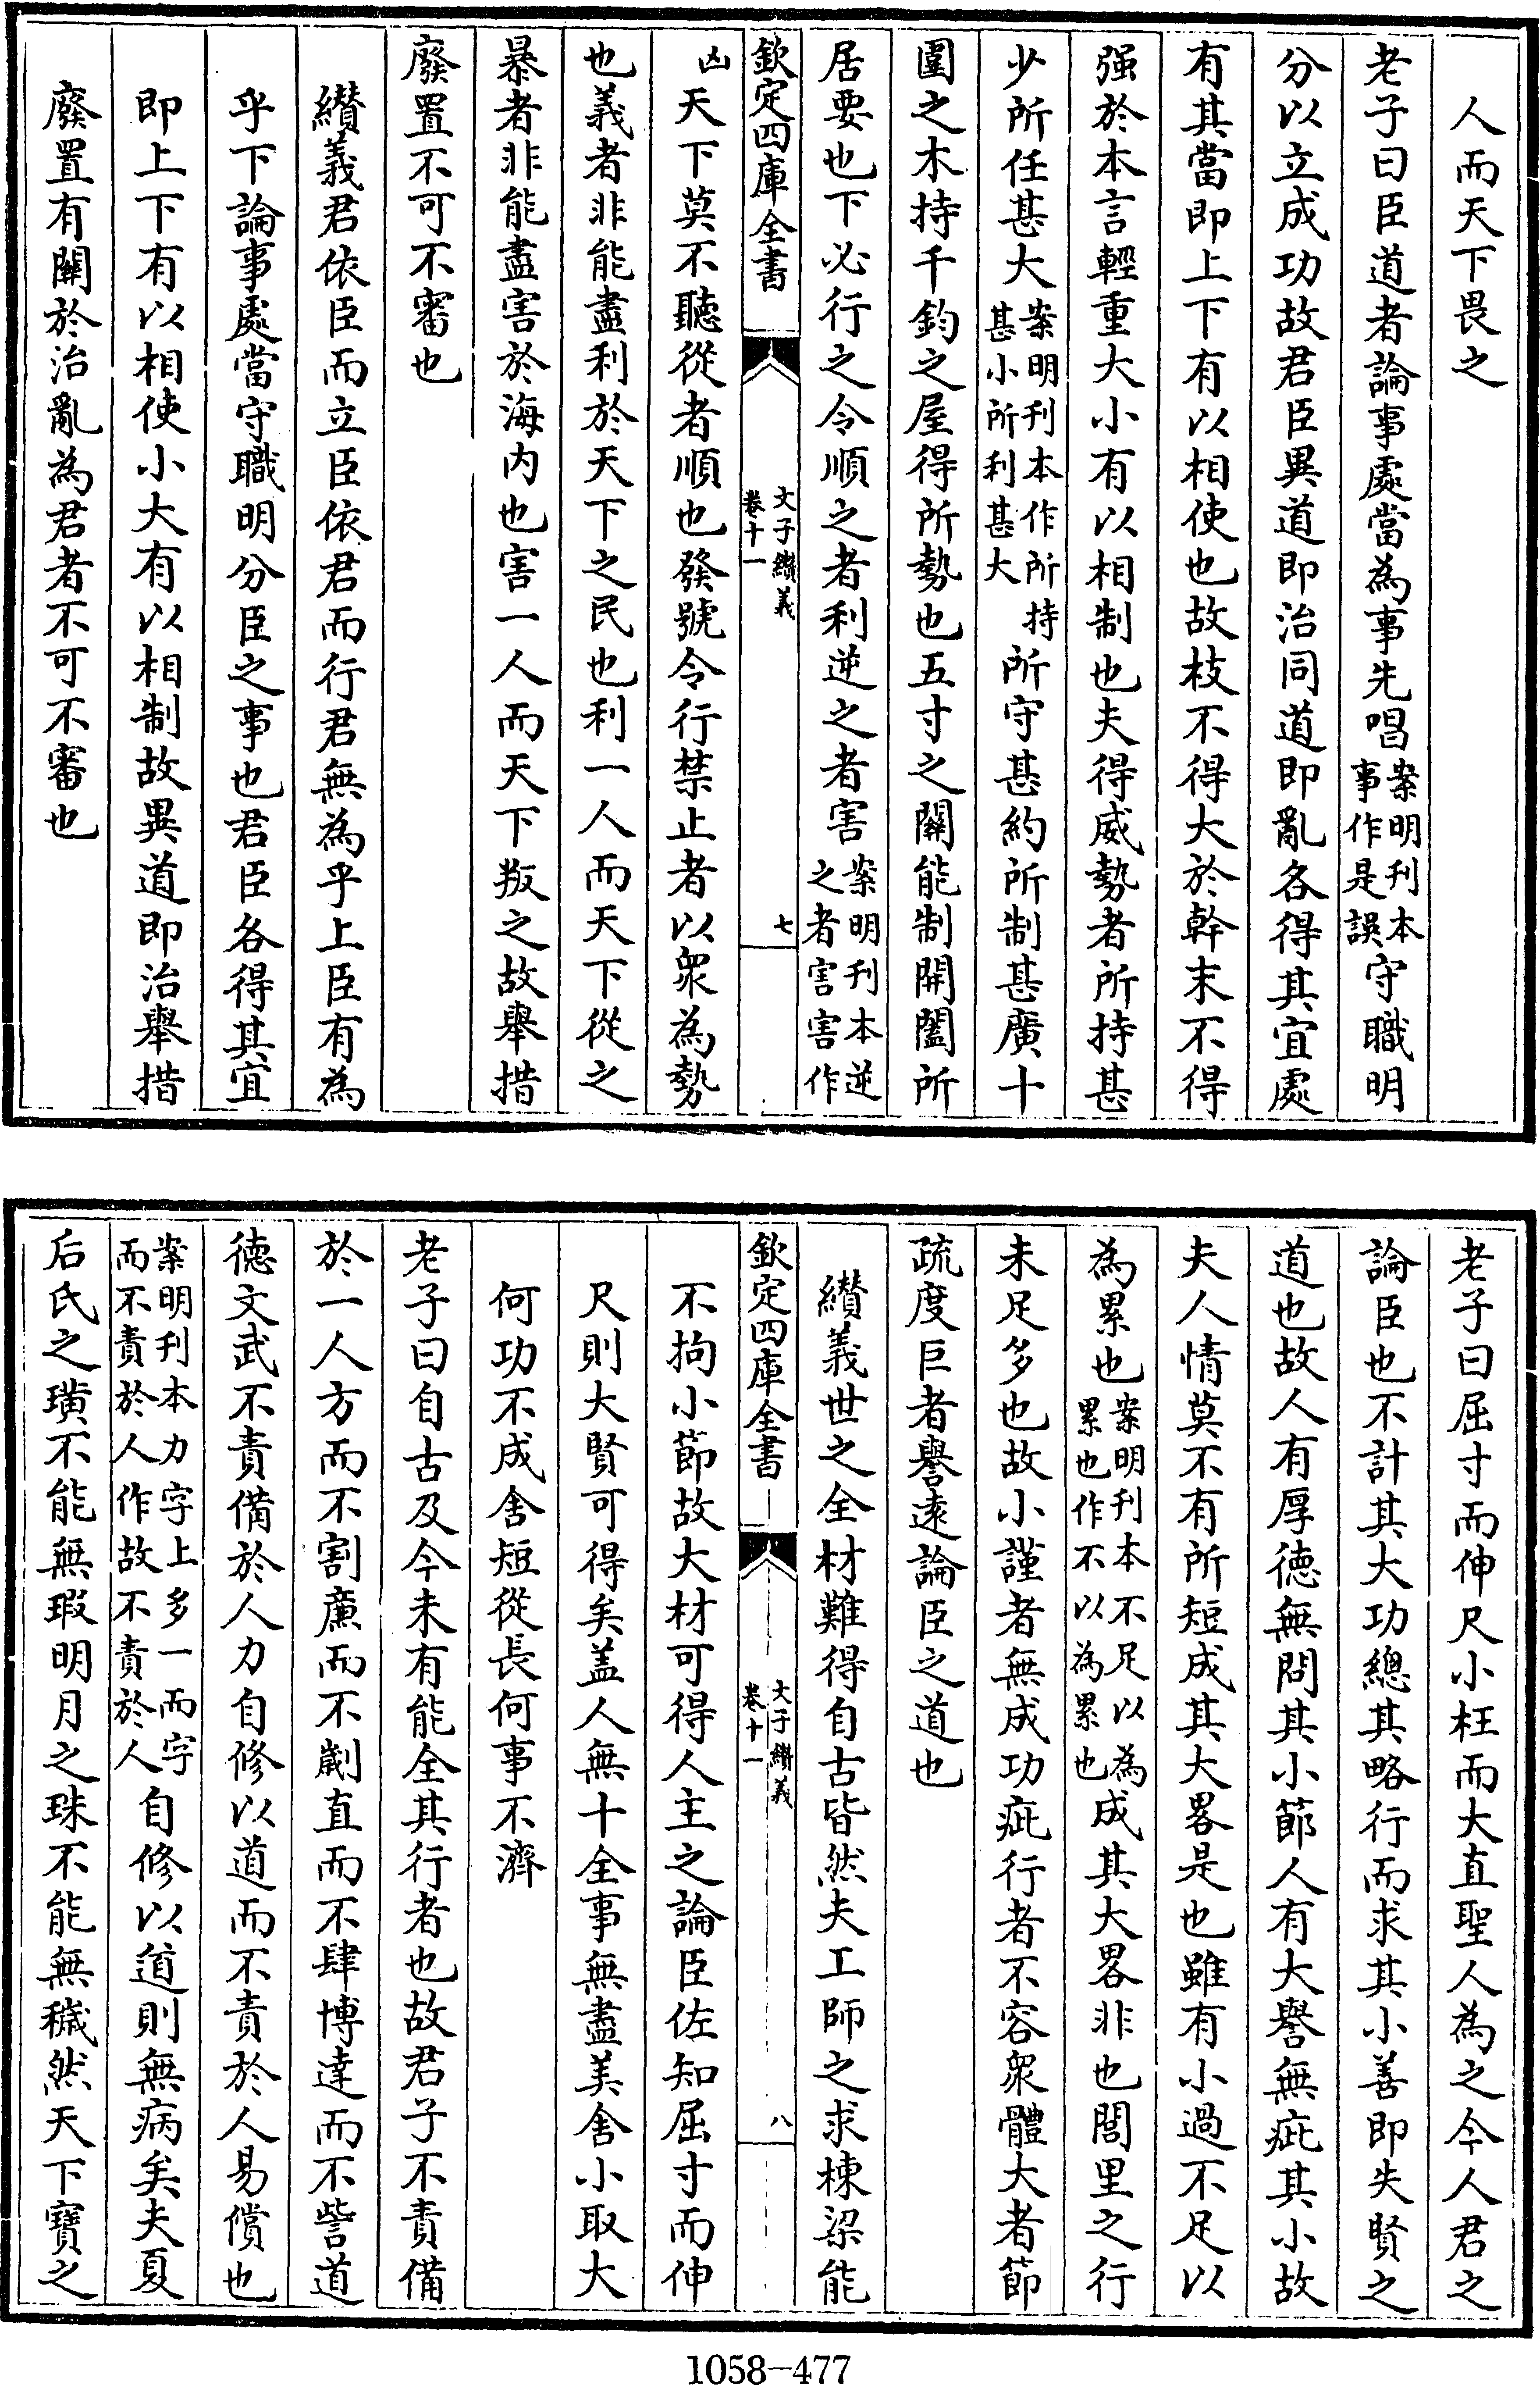 人而天下畏之
老子曰臣道者論事處當為事先唱案明刊本事作是誤守職明
分以立成功故君臣異道即治同道即亂各得其宜處
有其當即上下有以相使也故枝不得大於幹末不得
强於本言輕重大小有以相制也夫得威勢者所持甚
少所任甚大案明刊本作所持甚小所利甚大所守甚約所制甚廣十
圍之木持千鈞之屋得所勢也五寸之關能制開闔所
居要也下必行之令順之者利逆之者害案明刊本逆之者害害作
欽定四庫全書
文子纘義
卷十一
七
凶天下莫不聽從者順也發號令行禁止者以衆為勢
也義者非能盡利於天下之民也利一人而天下從之
暴者非能盡害於海内也害一人而天下叛之故舉措
廢置不可不審也
纘義君依臣而立臣依君而行君無為乎上臣有為
乎下論事處當守職明分臣之事也君臣各得其宜
即上下有以相使小大有以相制故異道即治舉措
廢置有關於治亂為君者不可不審也
老子曰屈寸而伸尺小枉而大直聖人為之今人君之
論臣也不計其大功總其略行而求其小善即失賢之
道也故人有厚德無問其小節人有大譽無疵其小故
夫人情莫不有所短成其大畧是也雖有小過不足以
為累也案明刊本不足以為累也作不以為累也成其大畧非也閭里之行
未足多也故小謹者無成功疵行者不容衆體大者節
疏度巨者譽遠論臣之道也
纘義世之全材難得自古皆然夫工師之求棟梁能
欽定四庫全書
文子纘義
卷十一
八
不拘小節故大材可得人主之論臣佐知屈寸而伸
尺則大賢可得矣盖人無十全事無盡美舍小取大
何功不成舍短從長何事不濟
老子曰自古及今未有能全其行者也故君子不責備
於一人方而不割廉而不劌直而不肆博達而不訾道
德文武不責備於人力自修以道而不責於人易償也
案明刊本力字上多一而字而不責於人作故不責於人自修以道則無病矣夫夏
后氏之璜不能無瑕明月之珠不能無穢然天下寶之
1058-477